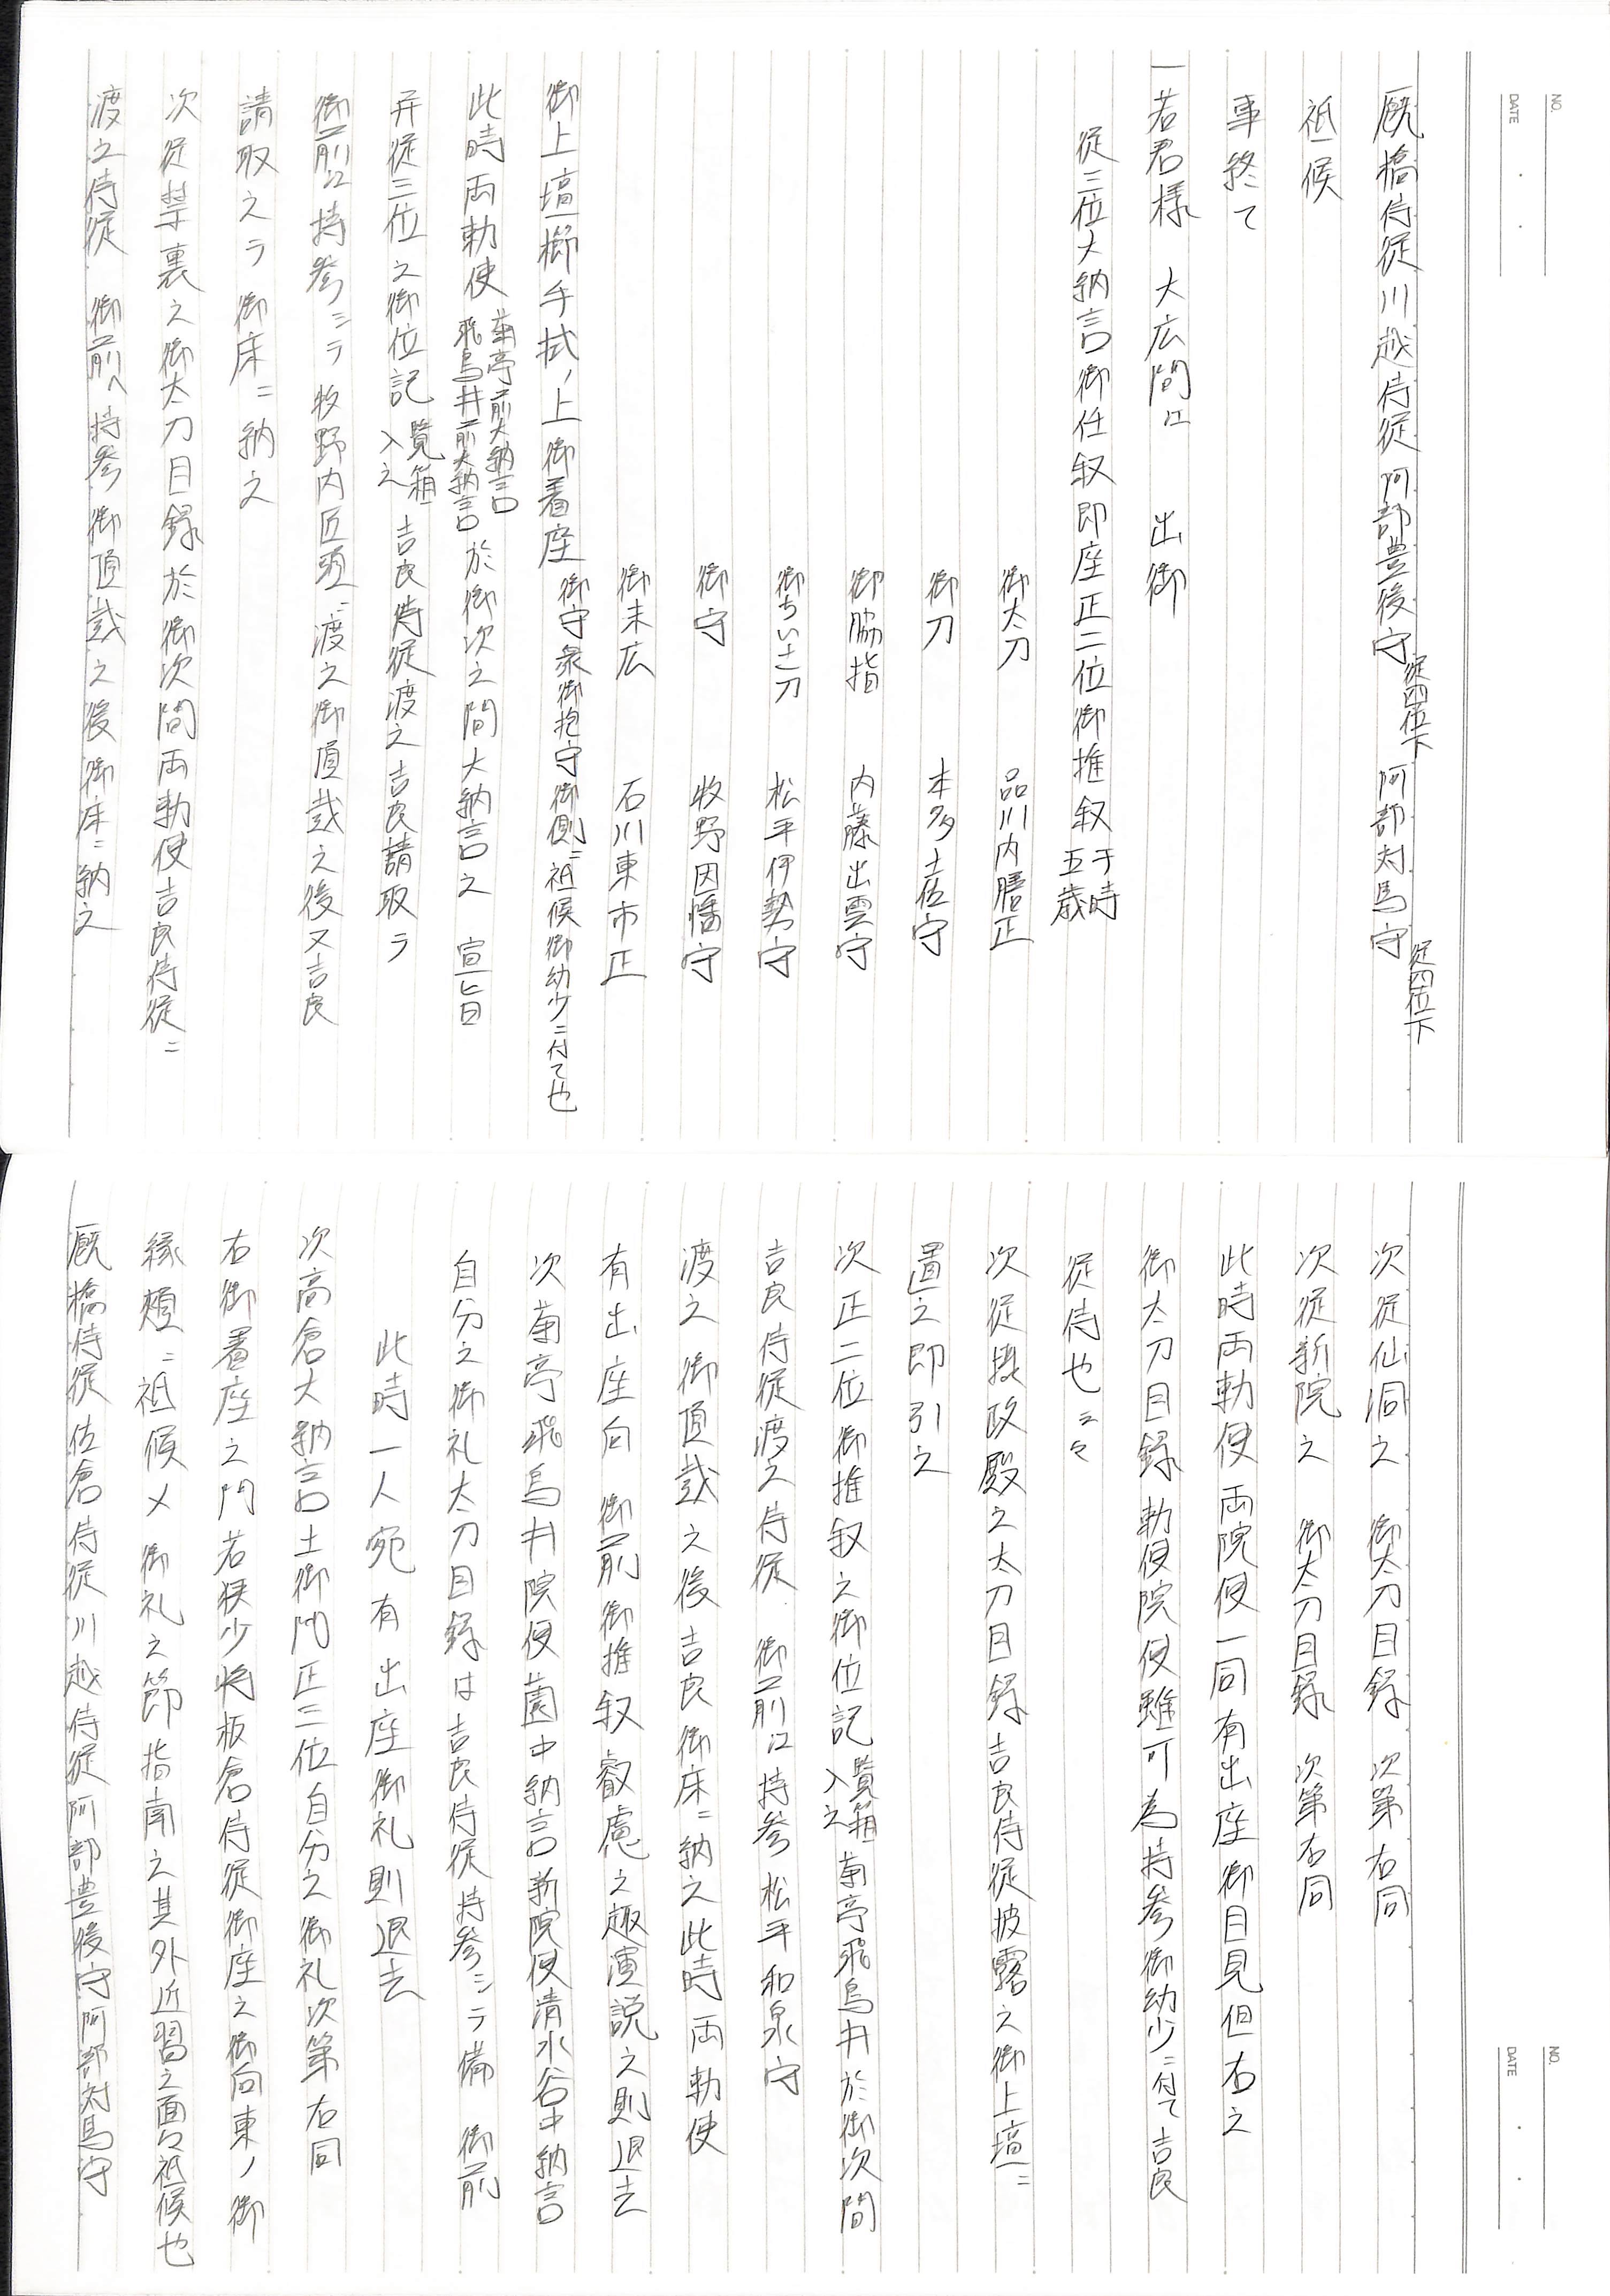 NO.
DATE
厩橋侍従川越侍従阿部豊後守従四位下 阿部対馬守従四位下
祗候
事終て
一若君様 大広間江 出御
従三位大納言御任叙即座正二位御推叙于時五歳
御太刀 品川内膳正
御刀 本多土佐守
御脇指 内藤出雲守
御ちいさ刀 松平伊勢守
御守 牧野因幡守
御末広 石川東市正
御上壇御手拭ノ上御着座御守衆御抱守御側ニ祗候御幼少ニ付て也
此時両勅使菊亭前大納言飛鳥井前大納言於御次之間大納言之 宣旨
并従三位之御位記覧箱入之吉良侍従渡之吉良請取ラ
御前江持参シラ牧野内匠頭ニ渡之御頂戴之後又吉良
請取之ラ御床ニ納之
次従禁裏之御太刀目録於御次間両勅使吉良侍従ニ
渡之侍従 御前へ持参御頂戴之後御床ニ納之
NO.
DATE
次従仙洞之 御太刀目録 次第右同
次従新院之 御太刀目録 次第右同
此時両勅使両院使一同有出座御目見但右之
御太刀目録勅使院使雖可為持参御幼少ニ付て吉良
従侍也云々
次従摂政殿之太刀目録吉良侍従披露之御上壇ニ
置之即引之
次正二位御推叙之御位記覧箱入之菊亭飛鳥井於御次間
吉良侍従渡之侍従 御前江持参松平和泉守
渡之御頂戴之後吉良御床ニ納之此時両勅使
有出座向 御前御推叙叡慮之趣演説之則退去
次菊亭飛鳥井院使園中納言新院使清水谷中納言
自分之御礼太刀目録は吉良侍従持参シラ備 御前
此時一人宛有出座御礼則退去
次高倉大納言土御門正三位自分之御礼次第右同
右御着座之門若狭少将板倉侍従御座之御向東ノ御
縁頬ニ祗候メ御礼之節指南之其外近習之面々祗候也
厩橋侍従佐倉侍従川越侍従阿部豊後守阿部対馬守